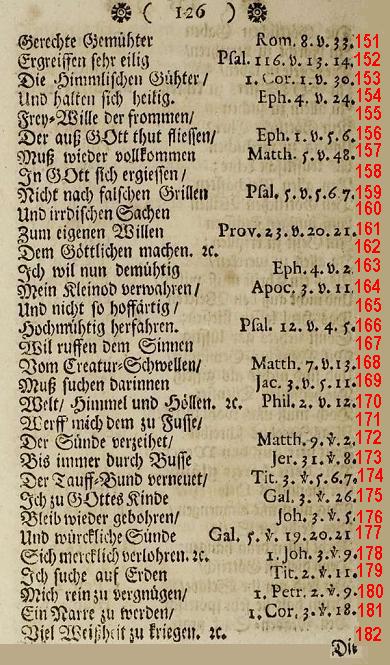 ( 126 )
Gerechte Gemühter Rom. 8. v. 33. 151
Ergreiffen sehr eilig Psal. 116. v. 13. 14. 152
Die Himmlischen Gühter/ 1. Cor. 1. v. 30. 153
Und halten sich heilig. Eph. 4. v. 24. 154
Frey-Wille der frommen/ 155
Der auß GOtt thut fliessen/ Eph. 1. v. 5. 6. 156
Muß wieder vollkommen Matth. 5. v. 48. 157
In GOtt sich ergiessen/ 158
Nicht nach falschen Grillen Psal. 5. v. 5. 6. 7. 159
Und irrdischen Sachen 160
Zum eigenen Willen Prov. 23. v. 20. 21. 161
Dem Göttlichen machen. ꝛc. 162
Ich wil nun demühtig Eph. 4. v. 2. 163
Mein Kleinod verwahren/ Apoc. 3. v. 11. 164
Und nicht so hoffärtig/ 165
Hochmühtig herfahren. Psal. 12. v. 4. 5. 166
Wil ruffen dem Sinnen 167
Vom Creatur-Schwellen/ Matth. 7. v. 13. 168
Muß suchen darinnen Jac. 3. v. 5. 11. 169
Welt/ Himmel und Höllen. ꝛc. Phil. 2. v. 12. 170
Werff mich dem zu Fusse/ 171
Der Sünde verzeihet/ Matth. 9. v. 2. 172
Bis immer durch Busse Jer. 31. v. 8. 173
Der Tauff-Bund verneuet/ Tit. 3. v. 5. 6. 7. 174
Ich zu GOttes Kinde Gal. 3. v. 26. 175
Bleib wieder gebohren/ Joh. 3. v. 5. 176
Und würckliche Sünde Gal. 5. v. 19. 20. 21 177
Sich mercklich verlohren. ꝛc. 1. Joh. 3. v. 9. 178
Ich suche auf Erden Tit. 2. v. 11. 179
Mich rein zu vergnügen/ 1. Petr. 2. v. 9. 180
Ein Narre zu werden/ 1. Cor. 3. v. 18. 181
Viel Weißheit zu kriegen. ꝛc. 182
Die